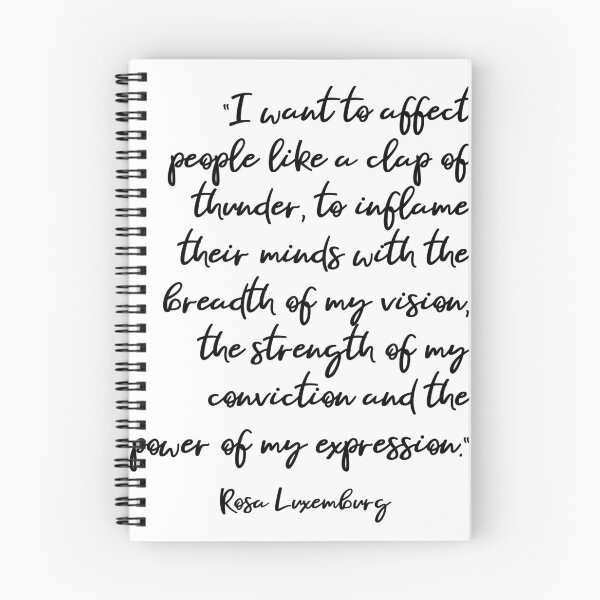 "I want to affect
people like a clap of
thunder, to inflame
their minds with the
breadth of my vision,
the strength of my
conviction and the
power of my expression."
Rosa Luxemburg